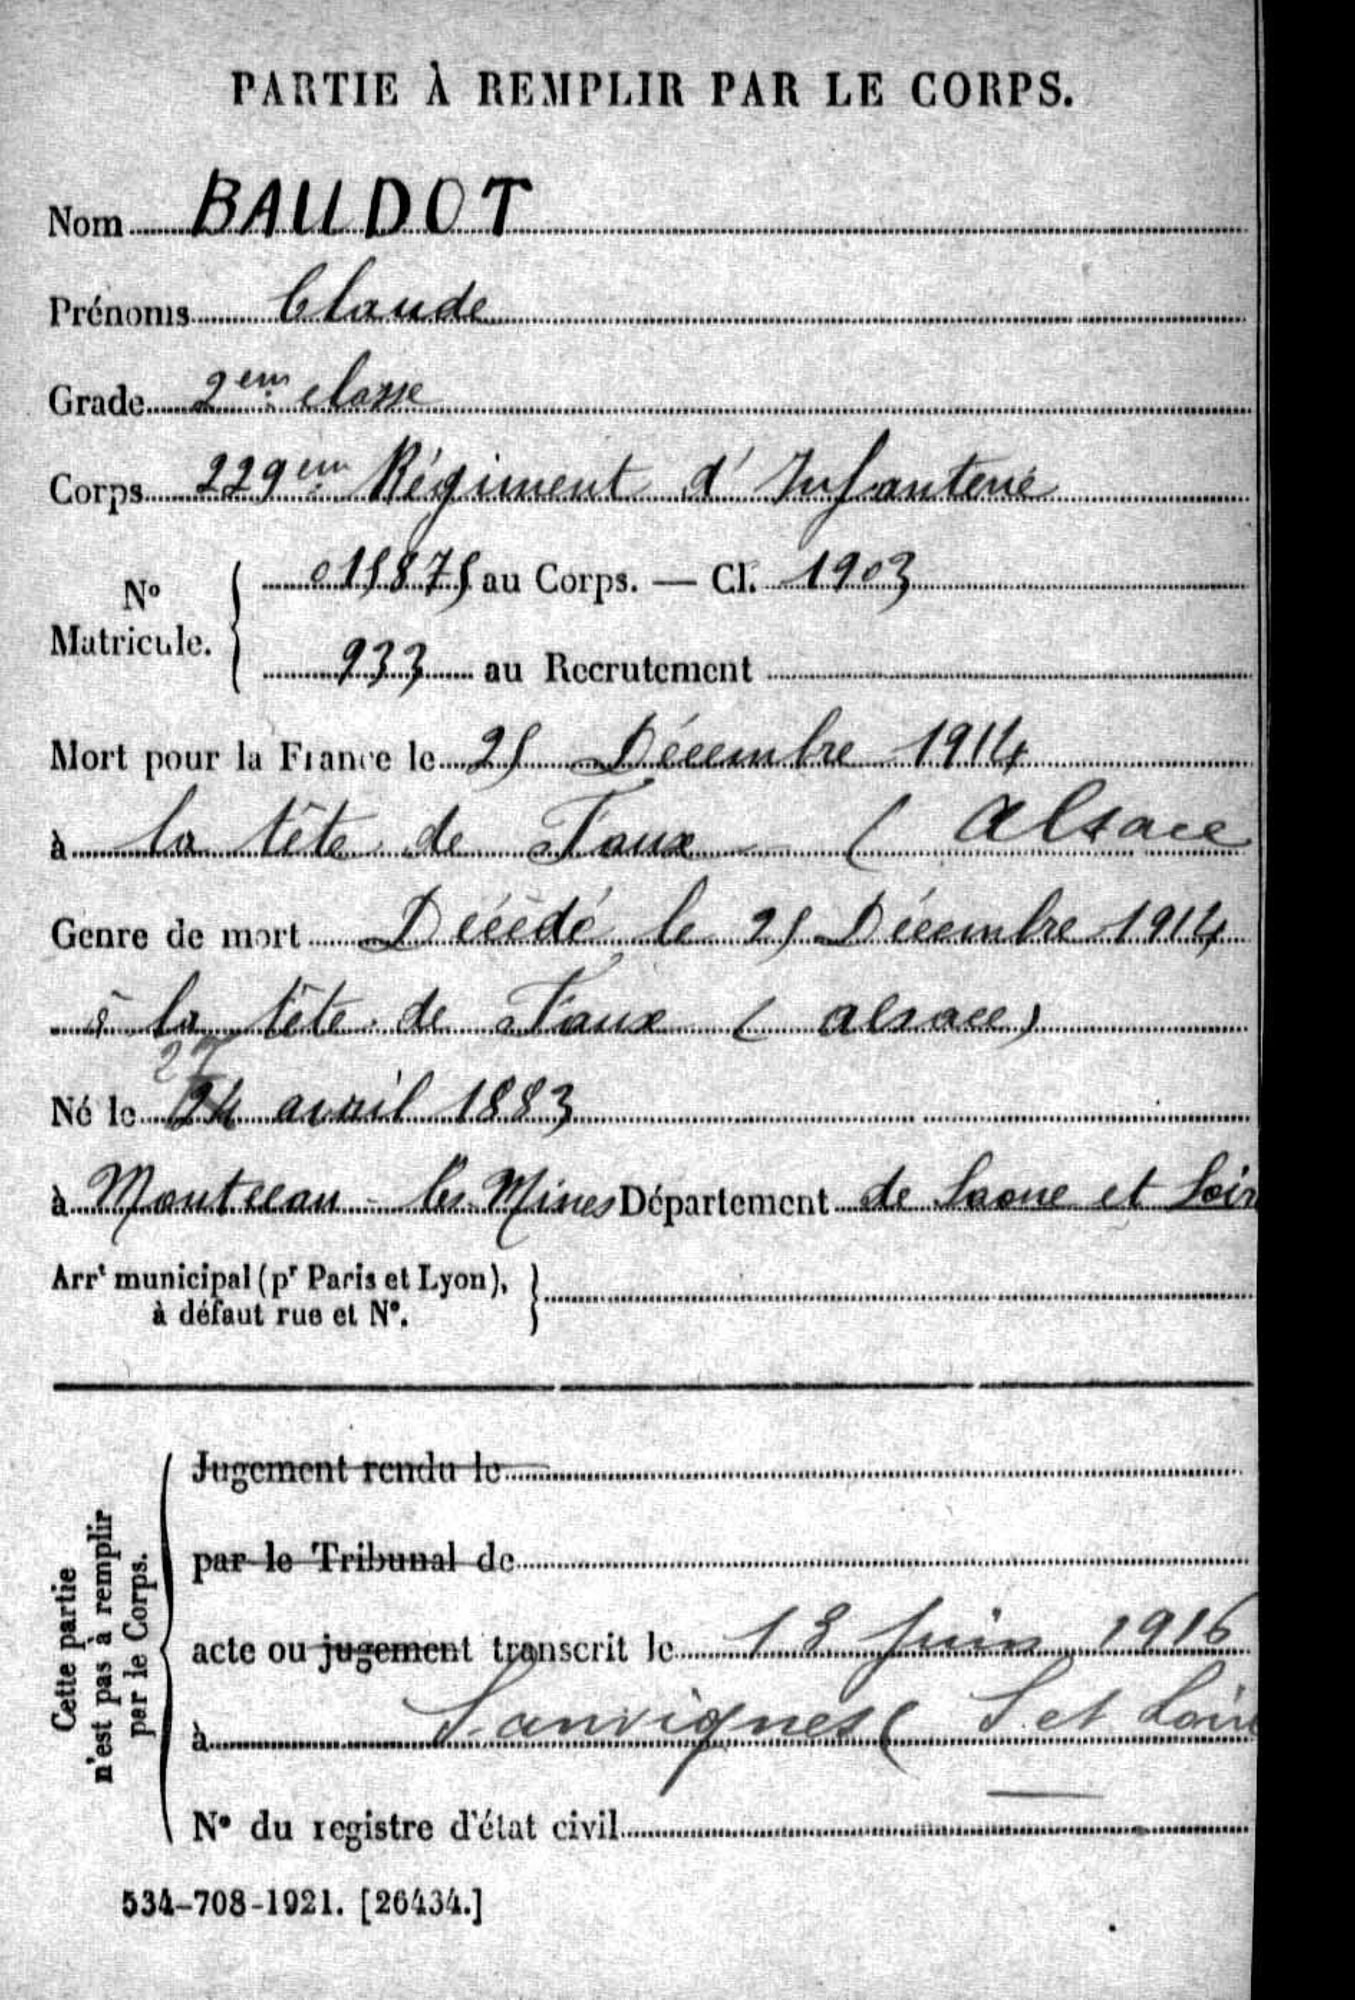 PARTIE À REMPLIR PAR LE CORPS.
Nom BAUDOT
Prénoms Claude
Grade 2em classe
Corps 229em Régiment d'Infanterie
No Matricule. { 015875 au Corps. — Cl. 1903
933 au Recrutement
Mort pour la France le 25 Décembre 1914
à la tête de Faux ( Alsace
Genre de mort Décédé le 25 Décembre 1914
à la tête de Faux ( alsace )
27
Né le 24 avril 1883
à Montceau - les Mines Département de Saone et Loir
Arrt municipal (pr Paris et Lyon), à défaut rue et No. }
Cette partie n'est pas à remplir par le Corps.
Jugement rendu le
par le Tribunal de
acte ou jugement transcrit le 13 Juin 1916
à Sanvignes ( S. et Loire
No du registre d'état civil
534-708-1921. [26434.]